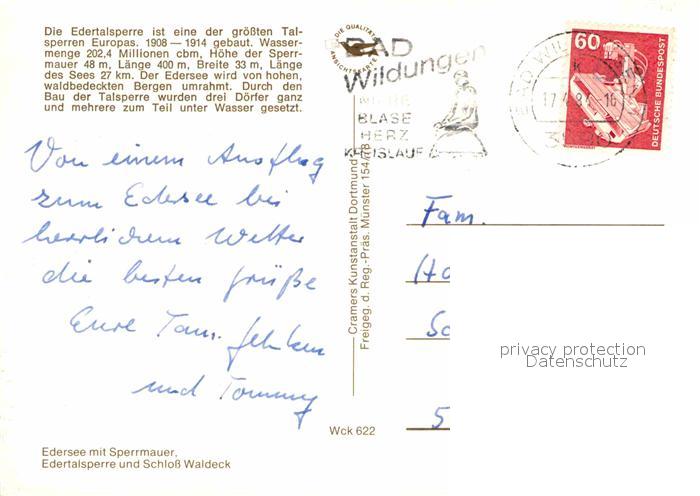 Die Edertalsperre ist eine der größten Tal-
sperren Europas. 1908 — 1914 gebaut. Wasser-
menge 202,4 Millionen cbm, Höhe der Sperr-
mauer 48 m, Länge 400 m, Breite 33 m, Länge
des Sees 27 km. Der Edersee wird von hohen,
waldbedeckten Bergen umrahmt. Durch den
Bau der Talsperre wurden drei Dörfer ganz
und mehrere zum Teil unter Wasser gesetzt.
DIE QUALITÄTS
ANSICHTSKARTE
BAD
Wildungen
BLASE
HERZ
KREISLAUF
BAD WIL
60
DEUTSCHE BUNDESPOST
Von einem Ausflug
zum Edersee bei
herrlichem Wetter
die besten Grüße
Eure Fam.
und Tommy
Cramers Kunstanstalt Dortmund
Freigeg. d. Reg.-Präs. Münster 154/78
Fam.
Ho
Sc
5
privacy protection
Datenschutz
Wck 622
Edersee mit Sperrmauer,
Edertalsperre und Schloß Waldeck